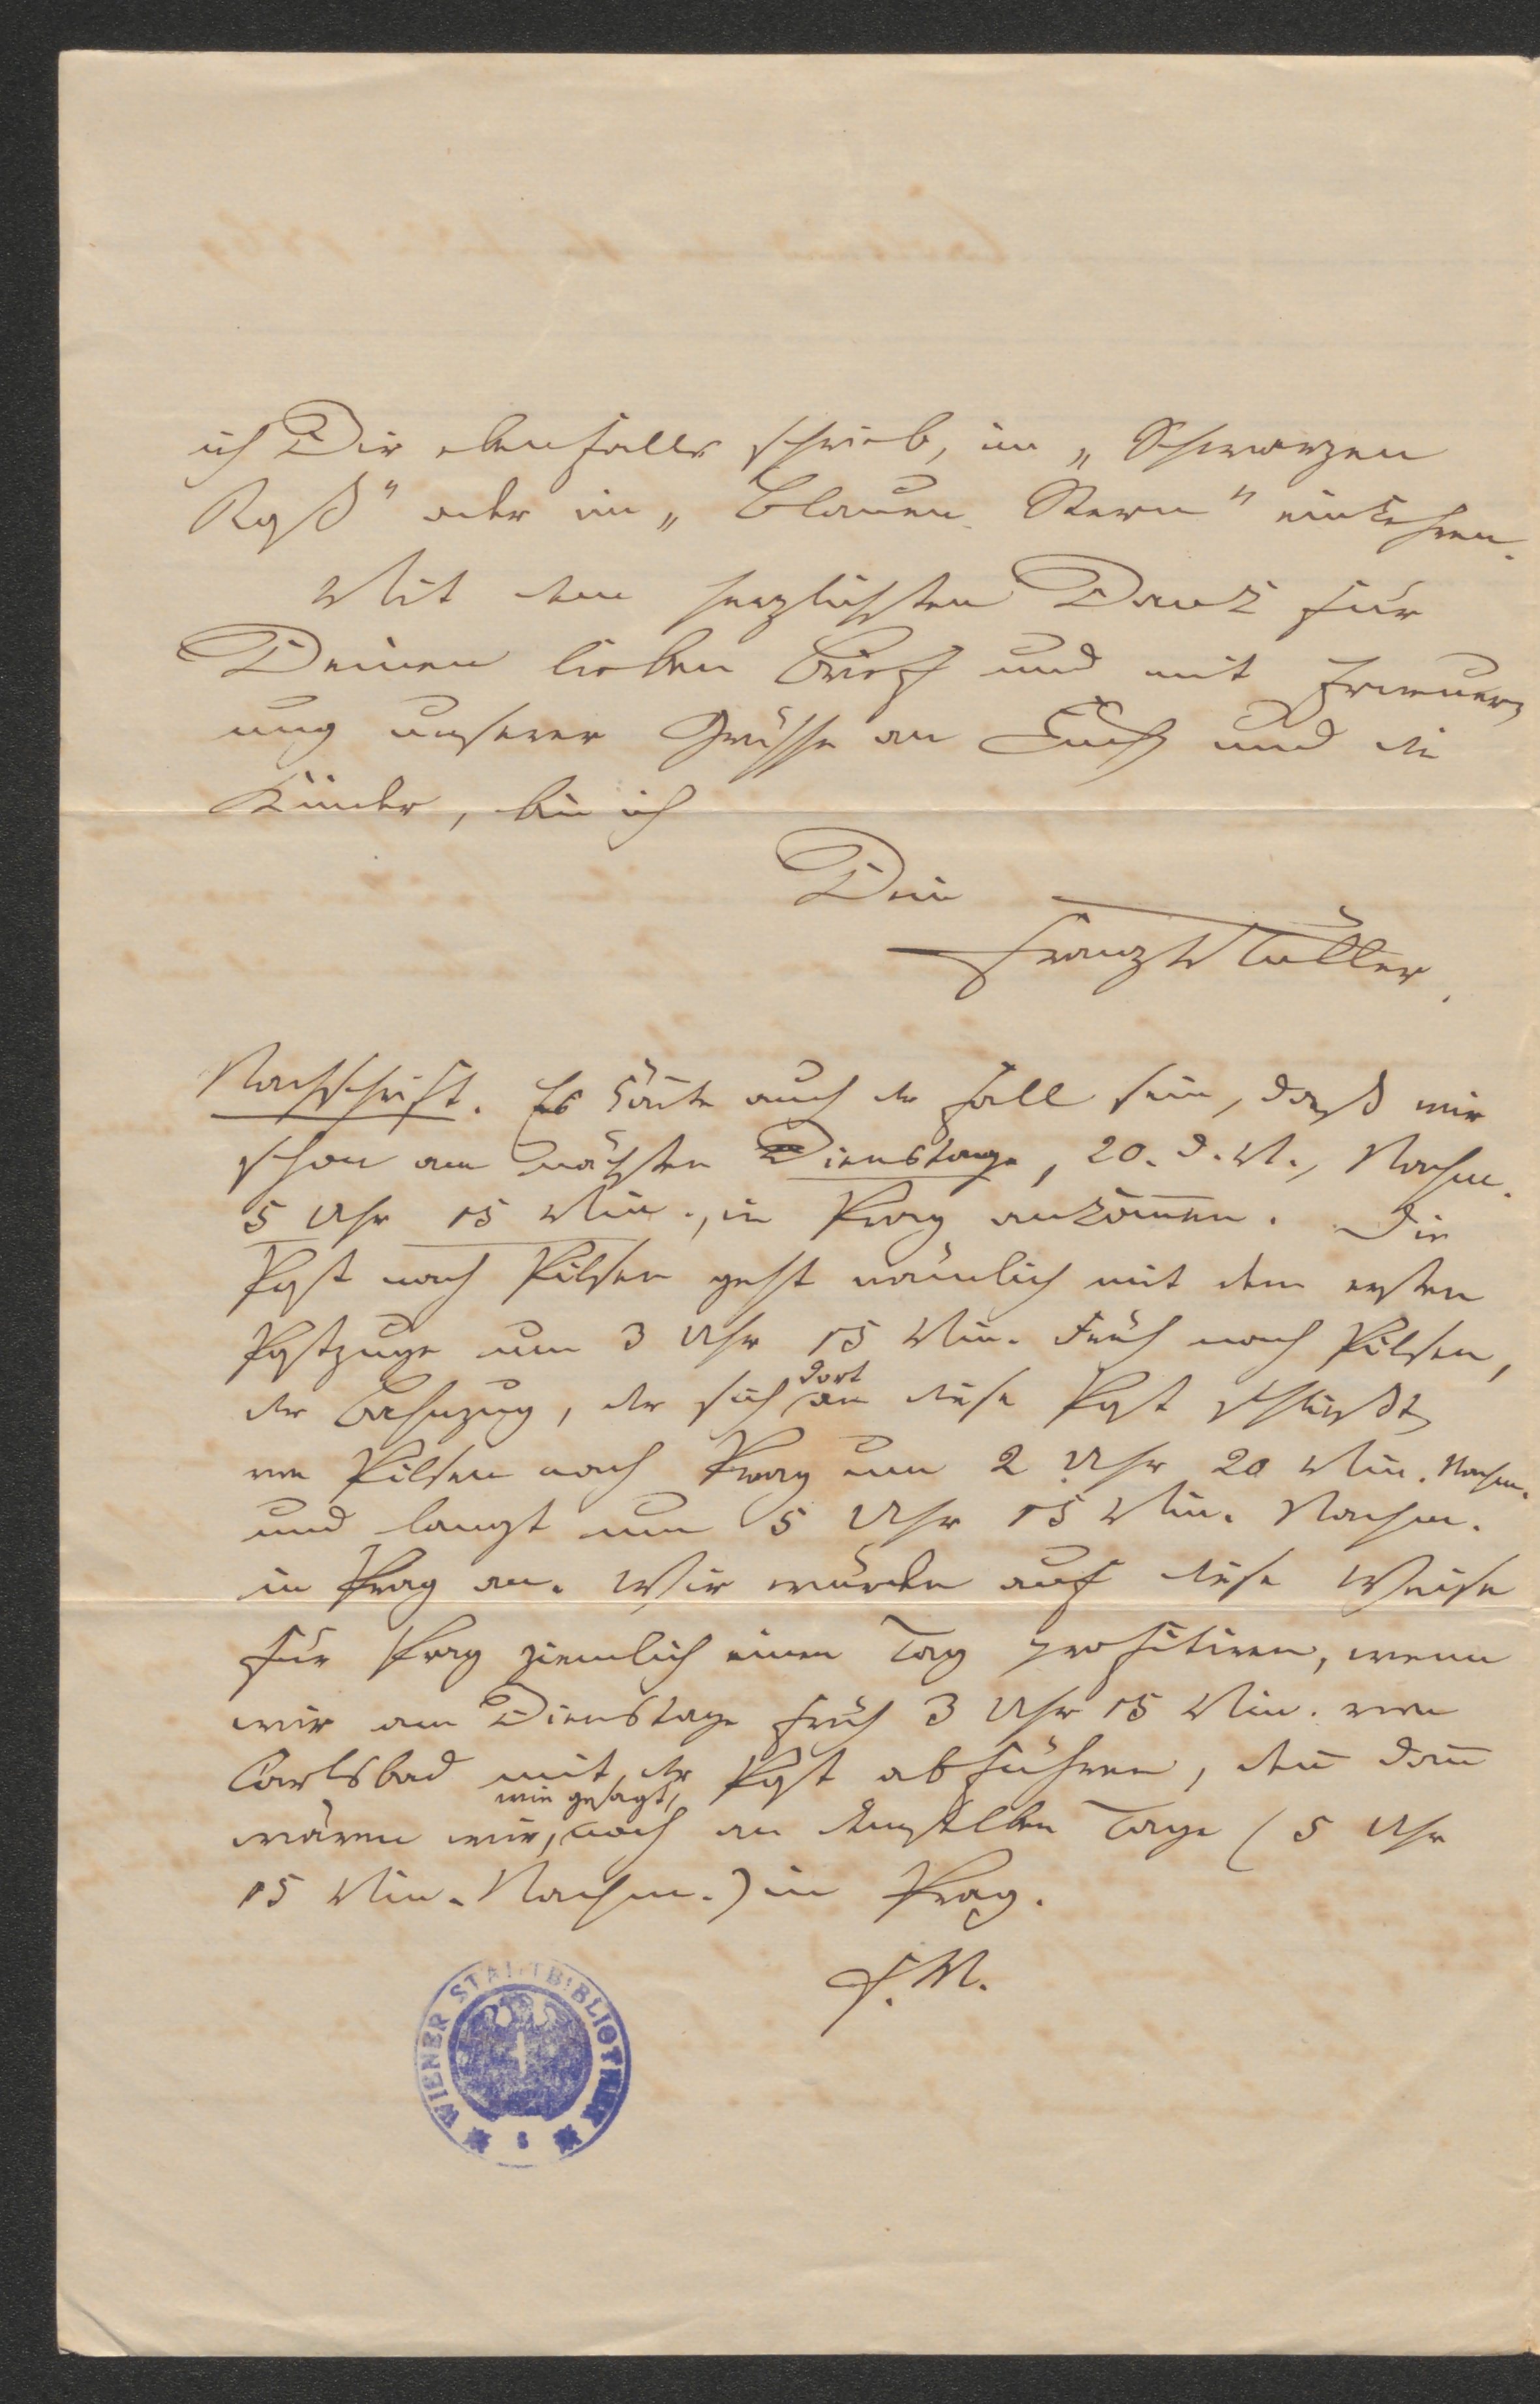 ich Dir ebenfalls schrieb, im „Schwarzen
Roß" oder im „Blauen Stern" einkehren.
Mit dem herzlichsten Dank für
Deinen lieben Brief und mit Erneuer¬
ung unserer Grüsse an Euch und die
Kinder, bin ich
Dein
Franz Müller.
Nachschrift. Es kön̄te auch der Fall sein, daß wir
schon am nächsten Dienstage, 20. d. M., Nachm.
5 Uhr 15 Min., in Prag ankom̄en. Die
Post nach Pilsen geht nämlich mit dem ersten
Postzuge um 3 Uhr 15 Min. Früh nach Pilsen,
der Bahnzug, der sich dort an diese Post schließt,
von Pilsen nach Prag um 2 Uhr 20 Min. Nachm.
und langt um 5 Uhr 15 Min. Nachm.
in Prag an. Wir würden auf diese Weise
für Prag ziemlich einen Tag profitiren, wenn
wir am Dienstage früh 3 Uhr 15 Min. von
Carlsbad mit der Post abführen, den̄ dan̄
wären wir, wie gesagt, noch an demselben Tage (5 Uhr
15 Min. Nachm.) in Prag.
F. M.
WIENER STADTBIBLIOTHEK